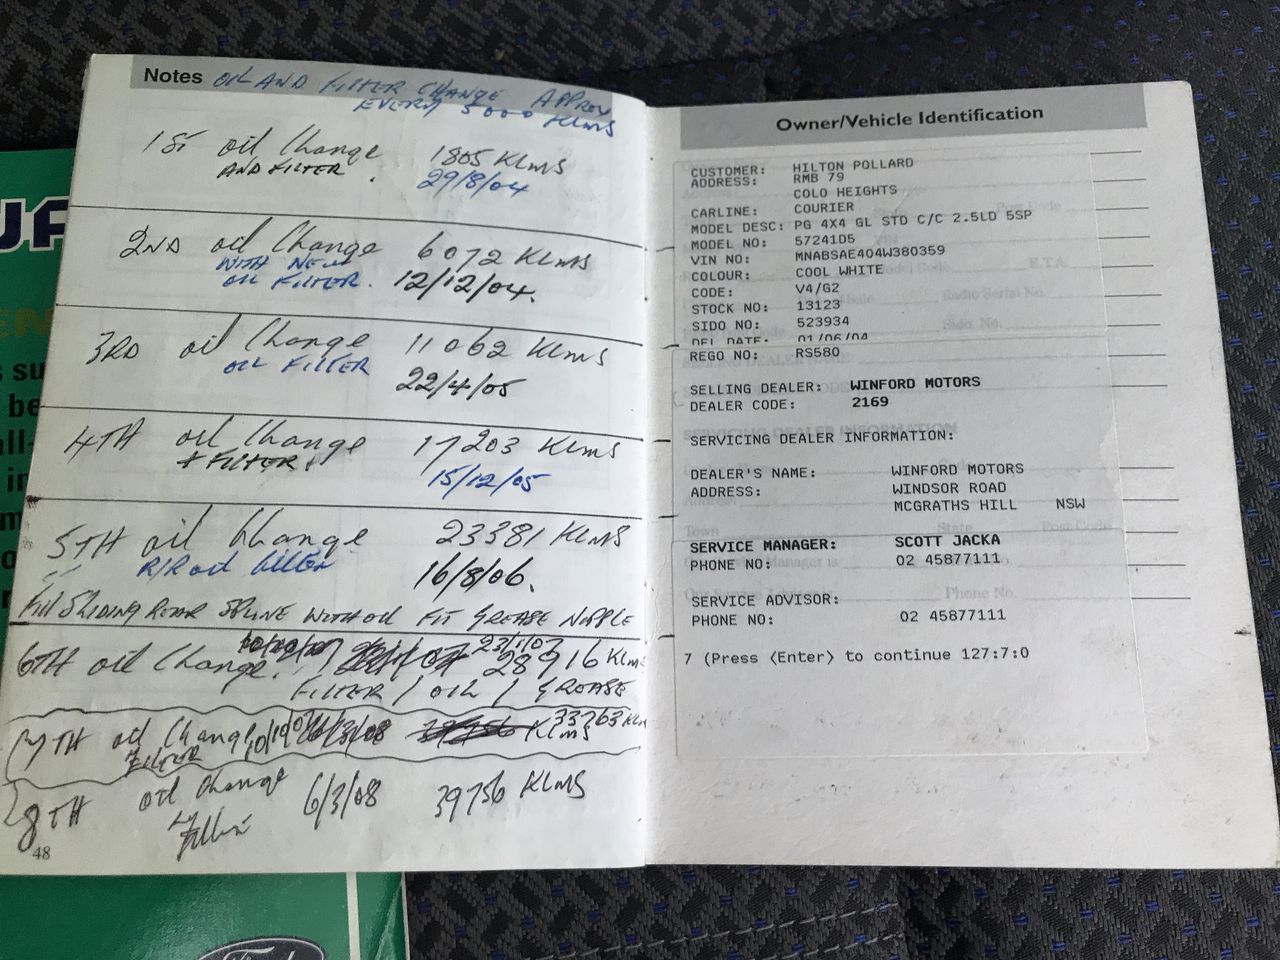 Notes OIL AND FILTER CHANGE APPROX
EVERY 5000 KLMS
1ST oil Change 1805 KLMS
AND FILTER. 29/8/04
2ND oil Change 6072 KLMS
WITH NEW
OIL FILTER. 12/12/04.
3RD oil Change 11062 KLMS
OIL FILTER 22/4/05
4TH oil Change 17203 KLMS
+ FILTER. 15/12/05
5TH oil Change 23381 KLMS
R/R oil filter 16/8/06.
SLIDING REAR SPLINE WITH OIL FIT GREASE NIPPLE
23/1/07
6TH oil Change. 28916 KLMS
FILTER / OIL / GREASE
7TH oil Change 33763 KLMS
FILTER
8TH oil Change 6/3/08 39756 KLMS
Filter
48
Owner/Vehicle Identification
CUSTOMER: HILTON POLLARD
ADDRESS: RMB 79
COLO HEIGHTS
CARLINE: COURIER
MODEL DESC: PG 4X4 GL STD C/C 2.5LD 5SP
MODEL NO: 57241D5
VIN NO: MNABSAE404W380359
COLOUR: COOL WHITE
CODE: V4/G2
STOCK NO: 13123
SIDO NO: 523934
DEL DATE: 01/06/04
REGO NO: RS580
SELLING DEALER: WINFORD MOTORS
DEALER CODE: 2169
SERVICING DEALER INFORMATION:
DEALER'S NAME: WINFORD MOTORS
ADDRESS: WINDSOR ROAD
MCGRATHS HILL NSW
SERVICE MANAGER: SCOTT JACKA
PHONE NO: 02 45877111
SERVICE ADVISOR:
PHONE NO: 02 45877111
7 (Press <Enter> to continue 127:7:0
Ford